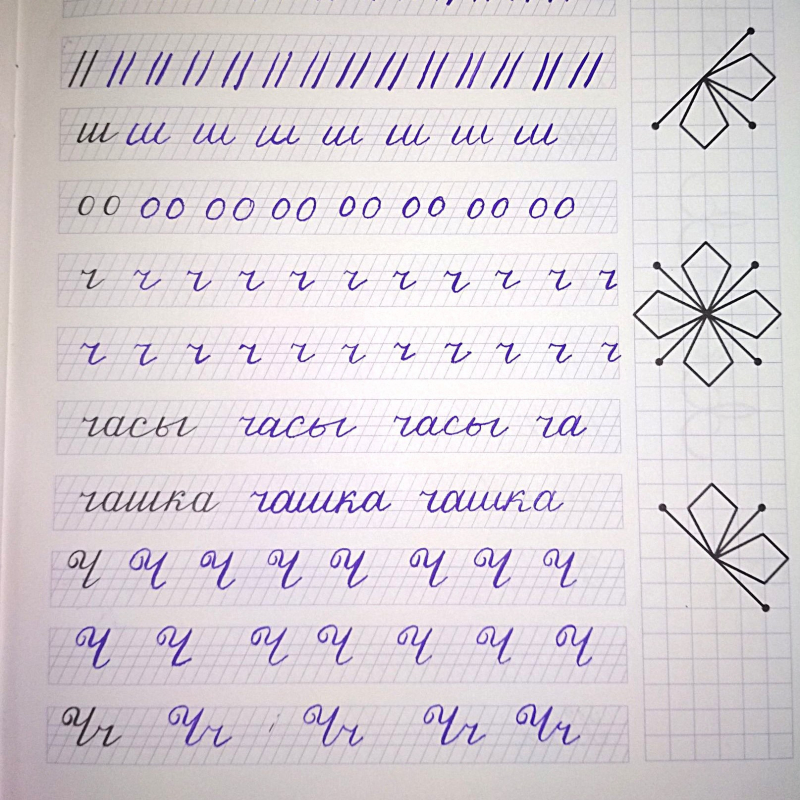 ш ш ш ш ш ш ш ш
оо оо оо оо оо оо оо оо
ч ч ч ч ч ч ч ч ч ч ч
ч ч ч ч ч ч ч ч ч ч ч
часы часы часы ча
чашка чашка чашка
Ч Ч Ч Ч Ч Ч Ч Ч
Ч Ч Ч Ч Ч Ч Ч
Чч Чч Чч Чч Чч